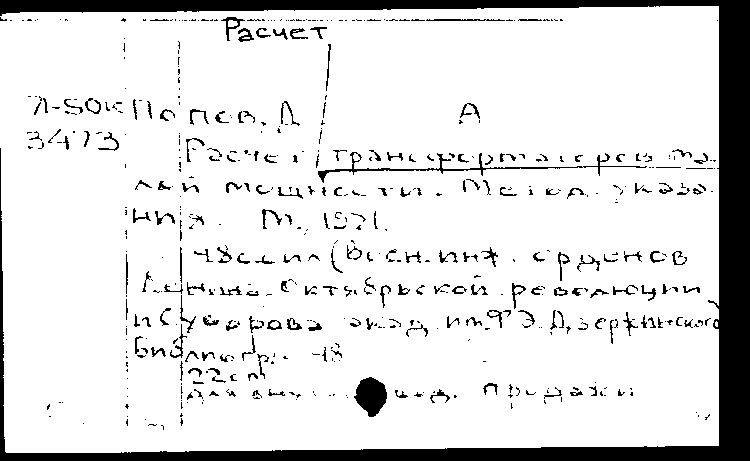 Расчет
Л-50к Попов, Д А
3473
Расчет трансформаторов ма-
лой мощности. Метод. указа-
ния. М., 1971.
48 с. ил (Воен. инж. орденов
Ленина Октябрьской революции
и Суворова акад. им. Ф Э. Дзержинского
Библиогр.: 48
22 cm
для внут продажи